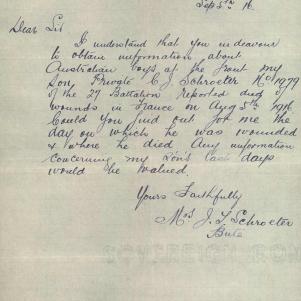 Sep 5th 16.
Dear Sir
I understand that you indeavour
to obtain information about
Australian boys at the front my
Son Private C. J. Schroeter No 1979
of the 27 Battalion reported died of
wounds in France on Aug 5th 1916
Could you find out for me the
day on which he was wounded
& where he died Any information
concerning my Son's last days
would be valued.
Yours Faithfully
Mrs J. F. Schroeter
Bute